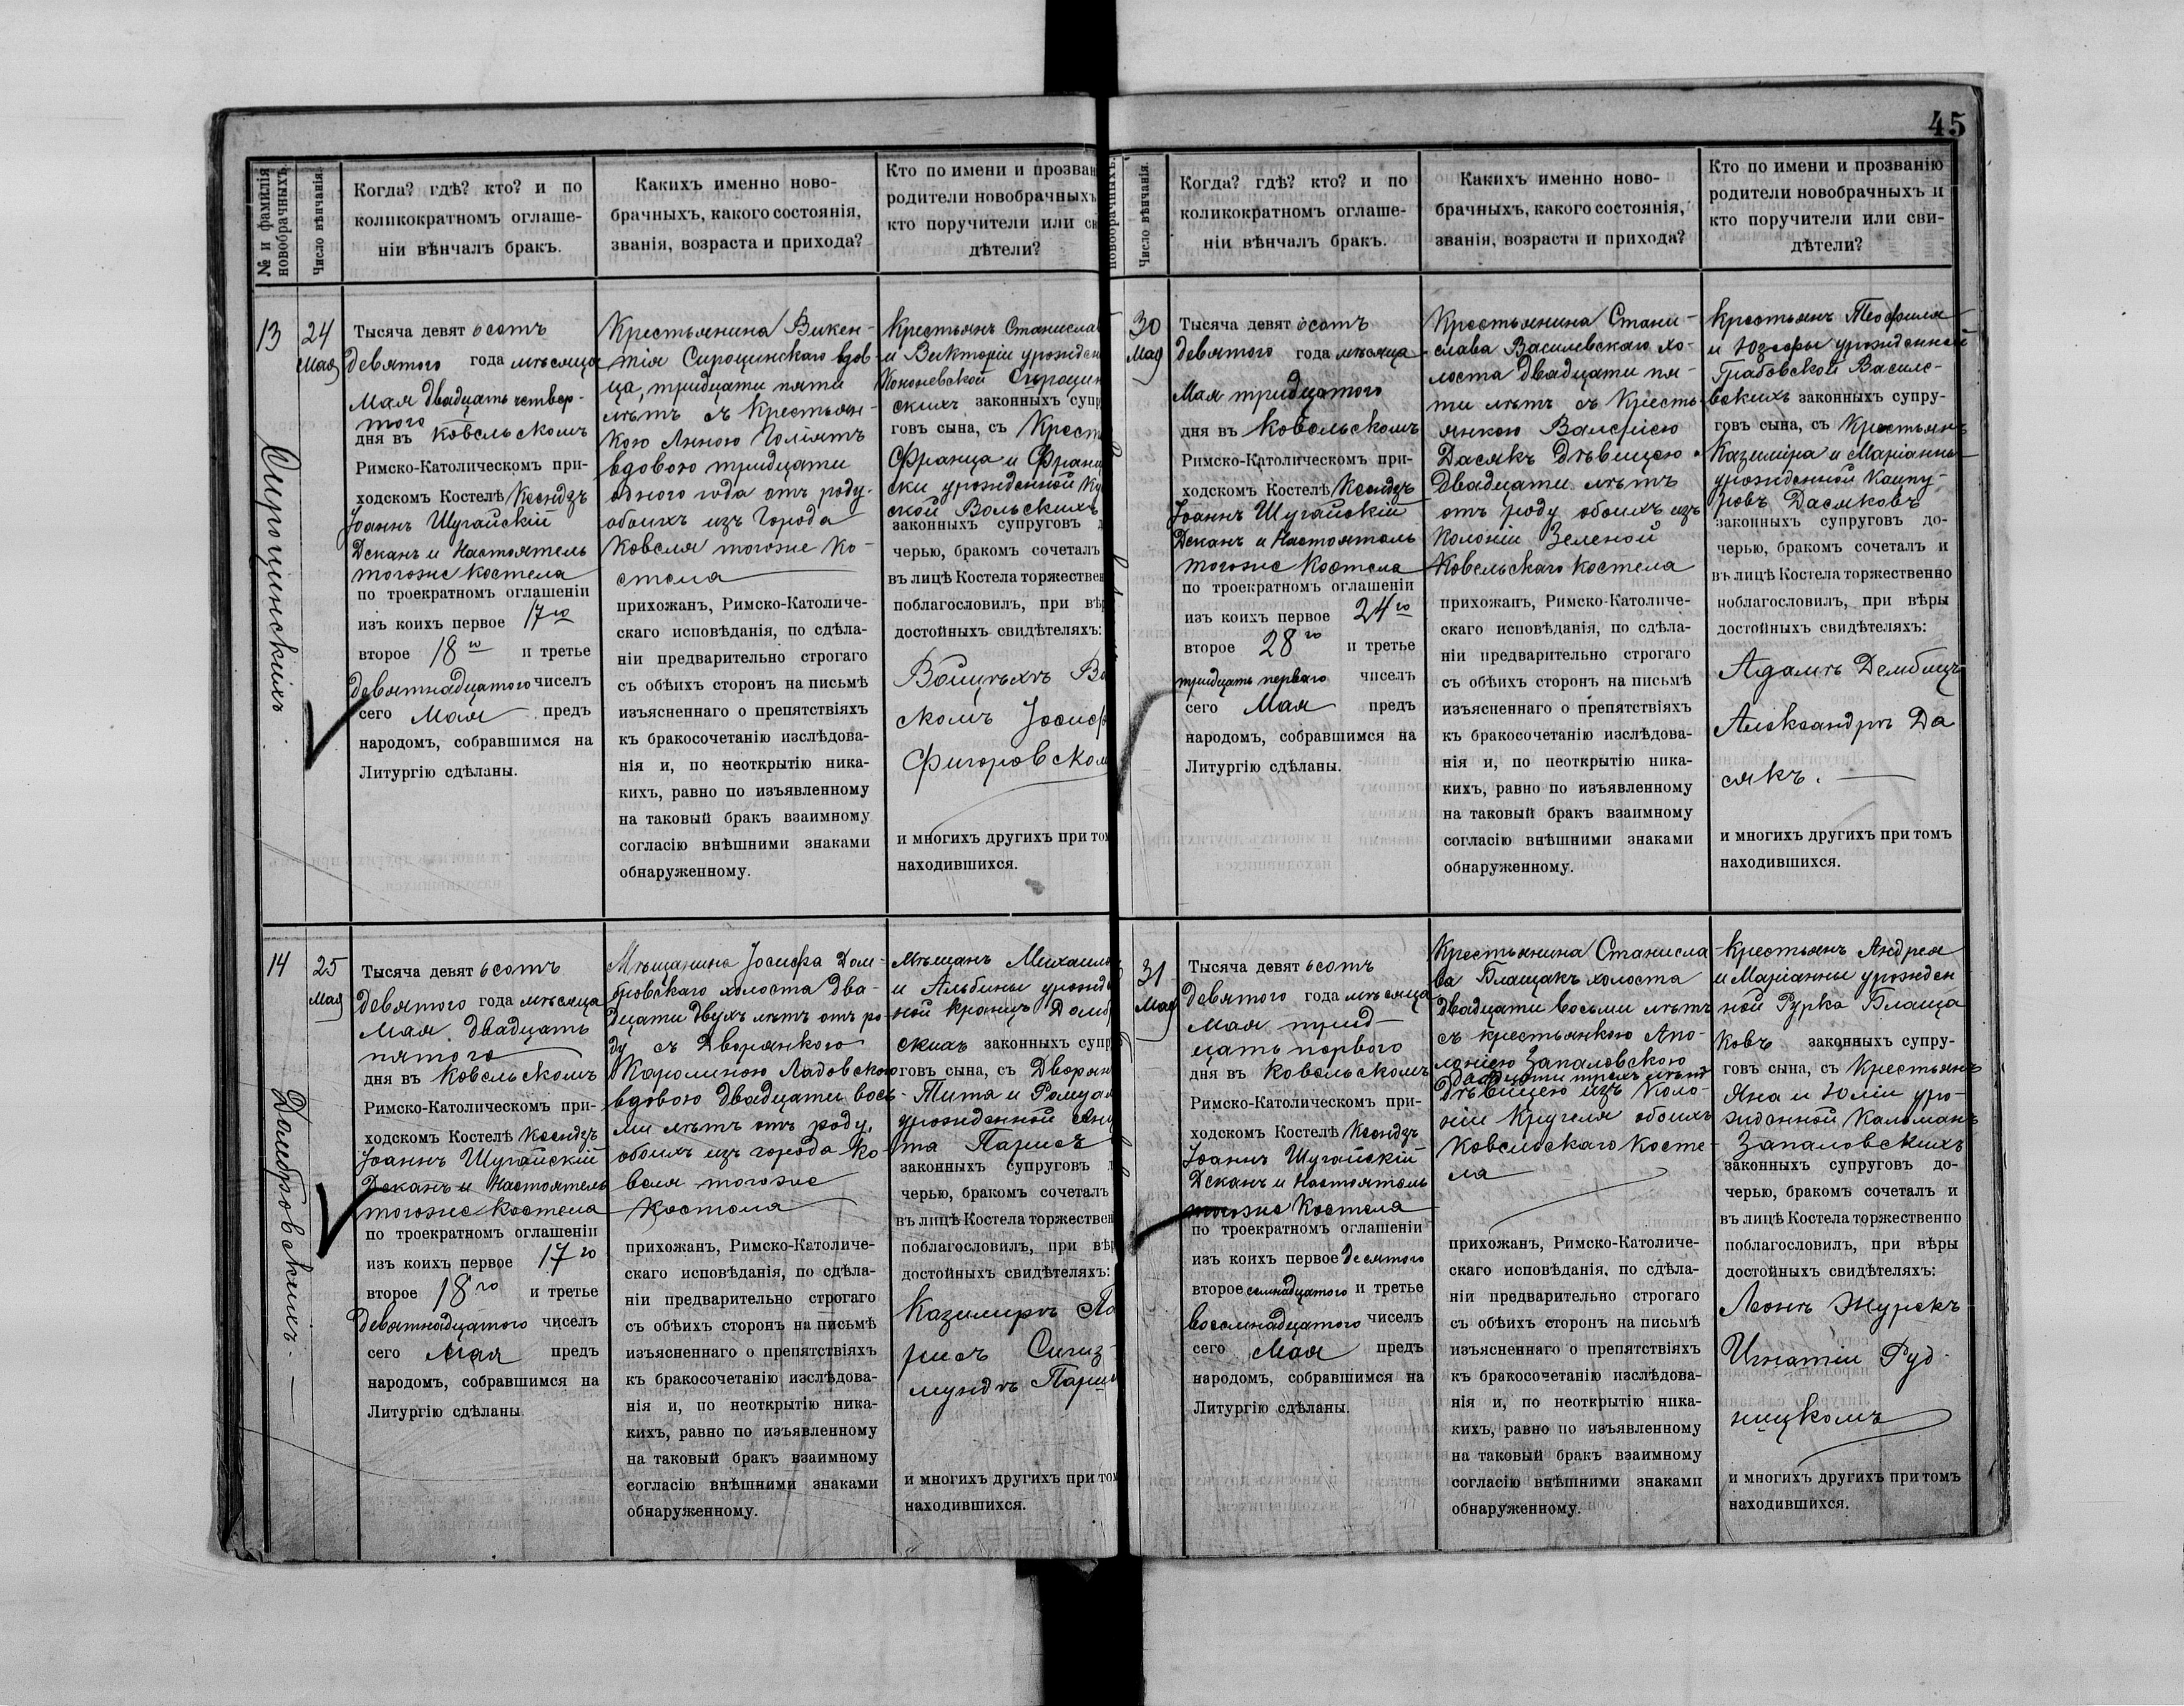 45
№ и фамилія
новобрачныхъ.
Число вѣнчанія.
Когда? гдѣ? кто? и по
коликократномъ оглаше-
ніи вѣнчалъ бракъ.
Какихъ именно ново-
брачныхъ, какого состоянія,
званія, возраста и прихода?
Кто по имени и прозван
родители новобрачныхъ
кто поручители или св
дѣтели?
13
Сироцинскихъ
24
Мая
Тысяча девятьсотъ
девятого года мѣсяца
Мая двадцать четвер-
того
дня въ Ковельскомъ
Римско-Католическомъ при-
ходскомъ Костелѣ Ксендзъ
Іоаннъ Шугайскій
Деканъ и Настоятель
тогоже Костела
по троекратномъ оглашеніи
изъ коихъ первое 17го
второе 18го и третье
девятнадцатого чиселъ
сего Мая предъ
народомъ, собравшимся на
Литургію сдѣланы.
Крестьянина Викен-
тія Сироцинскаго вдов
ца, тридцати пяти
лѣтъ съ Крестьян-
кою Анною Голіятъ
вдовою тридцати
одного года отъ роду.
обоихъ изъ Города
Ковеля тогоже Ко-
стела
прихожанъ, Римско-Католиче-
скаго исповѣданія, по сдѣла-
ніи предварительно строгаго
съ обѣихъ сторонъ на письмѣ
изъясненнаго о препятствіяхъ
къ бракосочетанію изслѣдова-
нія и, по неоткрытію ника-
кихъ, равно по изъявленному
на таковый бракъ взаимному
согласію внѣшними знаками
обнаруженному.
Крестьянъ Станислав
и Викторіи урожден
Кононевской Сироцин
скихъ законныхъ супр
говъ сына, съ Крест
Франца и Франц
ски урожденной
ской Вольскихъ
законныхъ супруговъ
черью, бракомъ сочеталъ
въ лицѣ Костела торжествен
поблагословилъ, при вѣр
достойныхъ свидѣтеляхъ:
Войцѣхѣ Во
скомъ Іосиф
Фигоровском
и многихъ другихъ при том
находившихся.
14
Домбровскихъ.
25
Мая
Тысяча девятьсотъ
девятого года мѣсяца
Мая двадцать
пятого
дня въ Ковельскомъ
Римско-Католическомъ при-
ходскомъ Костелѣ Ксендзъ
Іоаннъ Шугайскій
Деканъ и Настоятель
тогоже Костела
по троекратномъ оглашеніи
изъ коихъ первое 17го
второе 18го и третье
девятнадцатого чиселъ
сего Мая предъ
народомъ, собравшимся на
Литургію сдѣланы.
Мѣщанина Іосифа Дом-
бровскаго холоста два-
дцати двухъ лѣтъ отъ ро-
ду съ Дворянкого
Каролиною Ладовскою
вдовою двадцати вось-
ми лѣтъ отъ роду,
обоихъ изъ города Ко-
веля тогоже
Костела
прихожанъ, Римско-Католиче-
скаго исповѣданія, по сдѣла-
ніи предварительно строгаго
съ обѣихъ сторонъ на письмѣ
изъясненнаго о препятствіяхъ
къ бракосочетанію изслѣдова-
нія и, по неоткрытію ника-
кихъ, равно по изъявленному
на таковый бракъ взаимному
согласію внѣшними знаками
обнаруженному.
Мѣщанъ Михаила
и Альбины урожде
ной Краницъ Домб
скихъ законныхъ супр
говъ сына, съ Дворян
Тита и Ромуал
урожденной
Парисъ
законныхъ супруговъ
черью, бракомъ сочеталъ
въ лицѣ Костела торжествен
поблагословилъ, при вѣр
достойныхъ свидѣтеляхъ:
Казимирѣ Па
рисъ Сигиз-
мундѣ Парис
и многихъ другихъ при том
находившихся.
новобрачныхъ.
Число вѣнчанія.
Когда? гдѣ? кто? и по
коликократномъ оглаше-
ніи вѣнчалъ бракъ.
Какихъ именно ново-
брачныхъ, какого состоянія,
званія, возраста и прихода?
Кто по имени и прозванію
родители новобрачныхъ и
кто поручители или сви-
дѣтели?
30
Мая
Тысяча девятьсотъ
девятого года мѣсяца
Мая тридцатого
дня въ Ковельскомъ
Римско-Католическомъ при-
ходскомъ Костелѣ Ксендзъ
Іоаннъ Шугайскій
Деканъ и Настоятель
тогоже Костела
по троекратномъ оглашеніи
изъ коихъ первое 24го
второе 28го и третье
тридцать перваго чиселъ
сего Мая предъ
народомъ, собравшимся на
Литургію сдѣланы.
Крестьянина Стани-
слава Василевскаго хо-
лоста двадцати пя-
ти лѣтъ съ Кресть-
янкою Валеріею
Дасякъ дѣвицею
двадцати лѣтъ
отъ роду обоихъ изъ
Колоніи Зеленой
Ковельскаго Костела
прихожанъ, Римско-Католиче-
скаго исповѣданія, по сдѣла-
ніи предварительно строгаго
съ обѣихъ сторонъ на письмѣ
изъясненнаго о препятствіяхъ
къ бракосочетанію изслѣдова-
нія и, по неоткрытію ника-
кихъ, равно по изъявленному
на таковый бракъ взаимному
согласію внѣшними знаками
обнаруженному.
Крестьянъ Теофиля
и Юзефы урожденной
Грабовской Василе-
вскихъ законныхъ супру-
говъ сына, съ Крестьянъ
Казиміра и Маріанны
урожденной Каспу-
ровъ Дасяковъ
законныхъ супруговъ до-
черью, бракомъ сочеталъ и
въ лицѣ Костела торжественно
поблагословилъ, при вѣры
достойныхъ свидѣтеляхъ:
Адамъ Дембицъ
Александръ Да
сякъ.
и многихъ другихъ при томъ
находившихся.
31
Мая
Тысяча девятьсотъ
девятого года мѣсяца
Мая трид-
цать перваго
дня въ Ковельскомъ
Римско-Католическомъ при-
ходскомъ Костелѣ Ксендзъ
Іоаннъ Шугайскій
Деканъ и Настоятель
тогоже Костела
по троекратномъ оглашеніи
изъ коихъ первое десятого
второе семнадцатого и третье
восемнадцатого чиселъ
сего Мая предъ
народомъ, собравшимся на
Литургію сдѣланы.
Крестьянина Станисла
ва Блащакъ холоста
двадцати восьми лѣтъ
съ крестьянкою Апо-
лоніею Запаловскою
двадцати трехъ лѣтъ
дѣвицею изъ Коло-
ніи Кругеля обоихъ
Ковельскаго Косте-
ла
прихожанъ, Римско-Католиче-
скаго исповѣданія, по сдѣла-
ніи предварительно строгаго
съ обѣихъ сторонъ на письмѣ
изъясненнаго о препятствіяхъ
къ бракосочетанію изслѣдова-
нія и, по неоткрытію ника-
кихъ, равно по изъявленному
на таковый бракъ взаимному
согласію внѣшними знаками
обнаруженному.
Крестьянъ Андрея
и Маріанны урожден
ной Рурка Блаща
ковъ законныхъ супру-
говъ сына, съ Крестьянъ
Яна и Юліи уро-
жденной Кальманъ
Запаловскихъ
законныхъ супруговъ до-
черью, бракомъ сочеталъ и
въ лицѣ Костела торжественно
поблагословилъ, при вѣры
достойныхъ свидѣтеляхъ:
Леонъ Журекъ
Игнатіи Руд-
ницкомъ
и многихъ другихъ при томъ
находившихся.